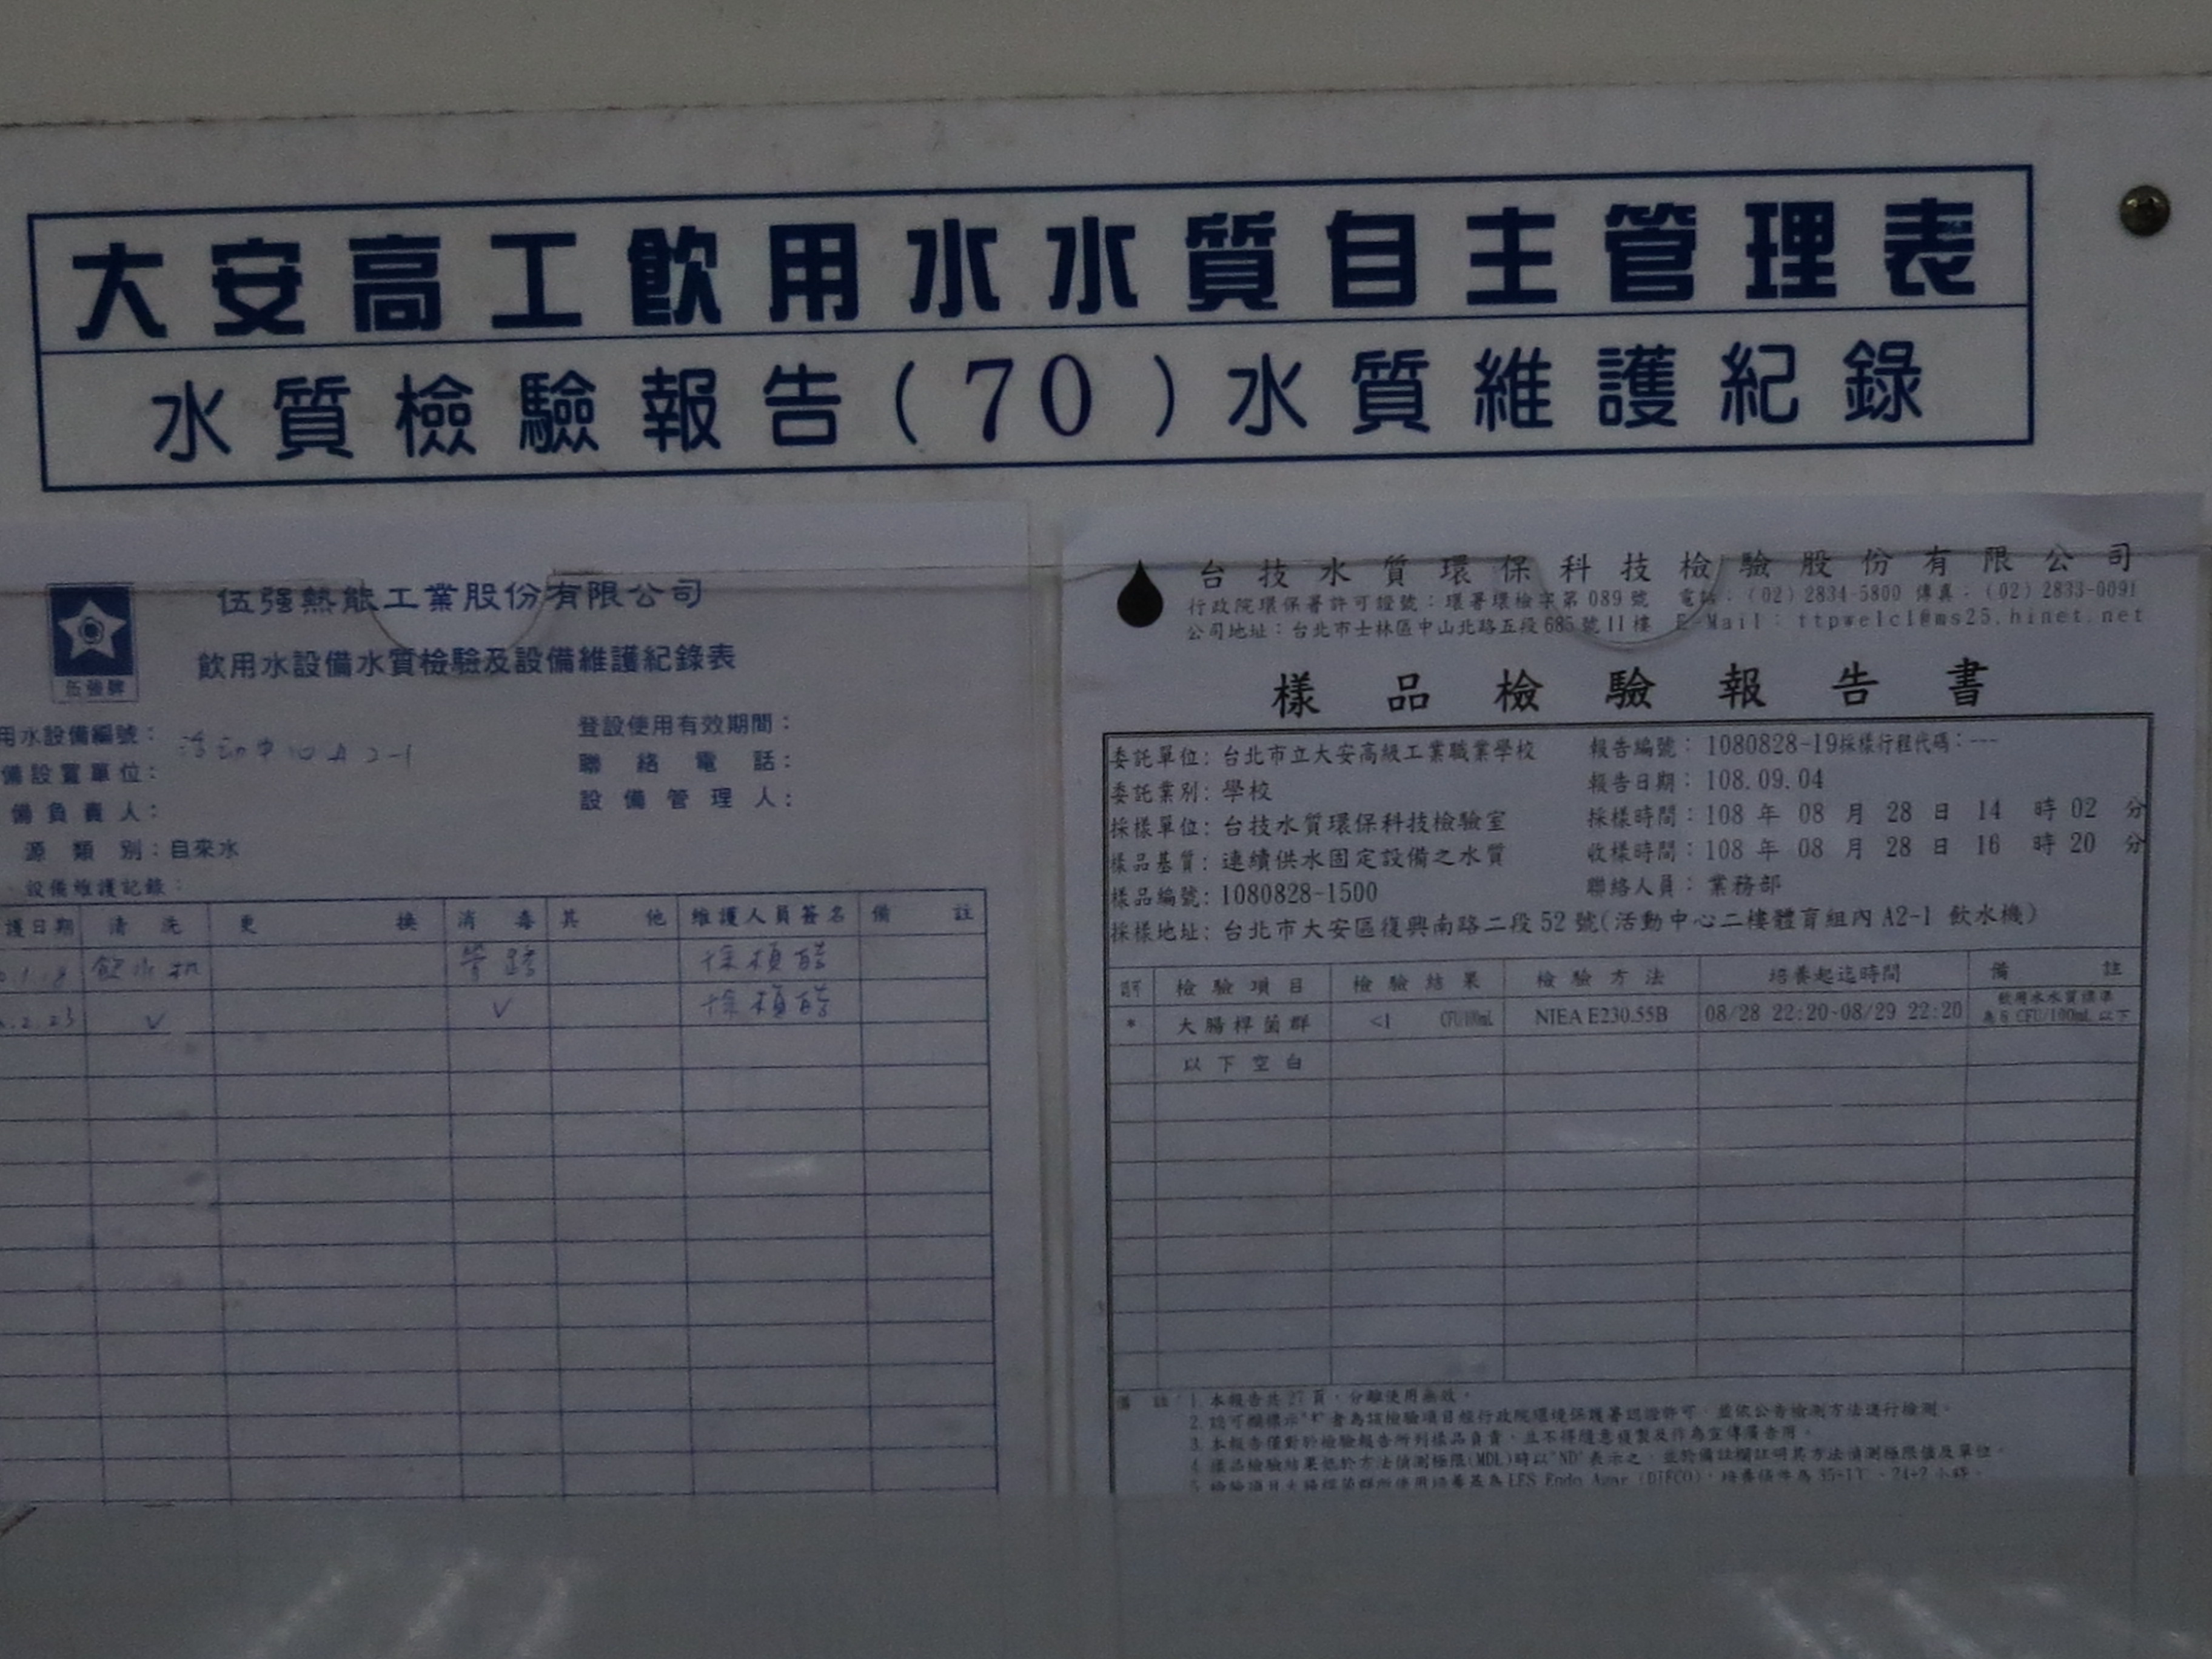 大安高工飲用水水質自主管理表
水質檢驗報告(70)水質維護紀錄
伍強熱能工業股份有限公司
飲用水設備水質檢驗及設備維護紀錄表
伍強牌
用水設備編號：
活動中心A2-1
備設置單位：
備負責人：
源類別：自來水
登設使用有效期間：
聯絡電話：
設備管理人：
設備維護記錄：
護日期 清洗 更換 消毒 其他 維護人員簽名 備註
1.8 飲水机 管路
2.23 ✓ ✓
台技水質環保科技檢驗股份有限公司
行政院環保署許可證號：環署環檢字第089號 電話：(02)2834-5800 傳真：(02)2833-0091
公司地址：台北市士林區中山北路五段685號11樓 E-Mail：ttpwelci@ms25.hinet.net
樣品檢驗報告書
委託單位：台北市立大安高級工業職業學校 報告編號：1080828-19採樣行程代碼：---
委託業別：學校 報告日期：108.09.04
採樣單位：台技水質環保科技檢驗室 採樣時間：108年08月28日14時02分
樣品基質：連續供水固定設備之水質 收樣時間：108年08月28日16時20分
樣品編號：1080828-1500 聯絡人員：業務部
採樣地址：台北市大安區復興南路二段52號(活動中心二樓體育組內A2-1 飲水機)
檢驗項目 檢驗結果 檢驗方法 培養起迄時間 備註
* 大腸桿菌群 <1 CFU/100mL NIEA E230.55B 08/28 22:20~08/29 22:20 飲用水水質標準為6 CFU/100mL以下
以下空白
備註 1.本報告共27頁，分離使用無效。
2.認可欄標示"*"者為該檢驗項目經行政院環境保護署認證許可，並依公告檢測方法進行檢測。
3.本報告僅對於檢驗報告所列樣品負責，並不得隨意複製及作為宣傳廣告用。
4.樣品檢驗結果低於方法偵測極限(MDL)時以"ND"表示之，並於備註欄註明其方法偵測極限值及單位。
5.檢驗項目大腸桿菌群所使用培養基為LES Endo Agar (DIFCO)，培養條件為35±1℃、24±2小時。